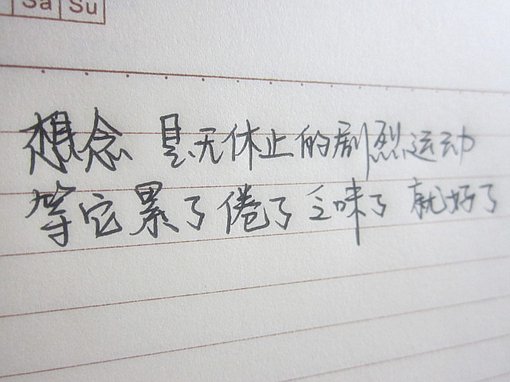 Sa Su
想念 是无休止的剧烈运动
等它累了倦了乏味了 就好了